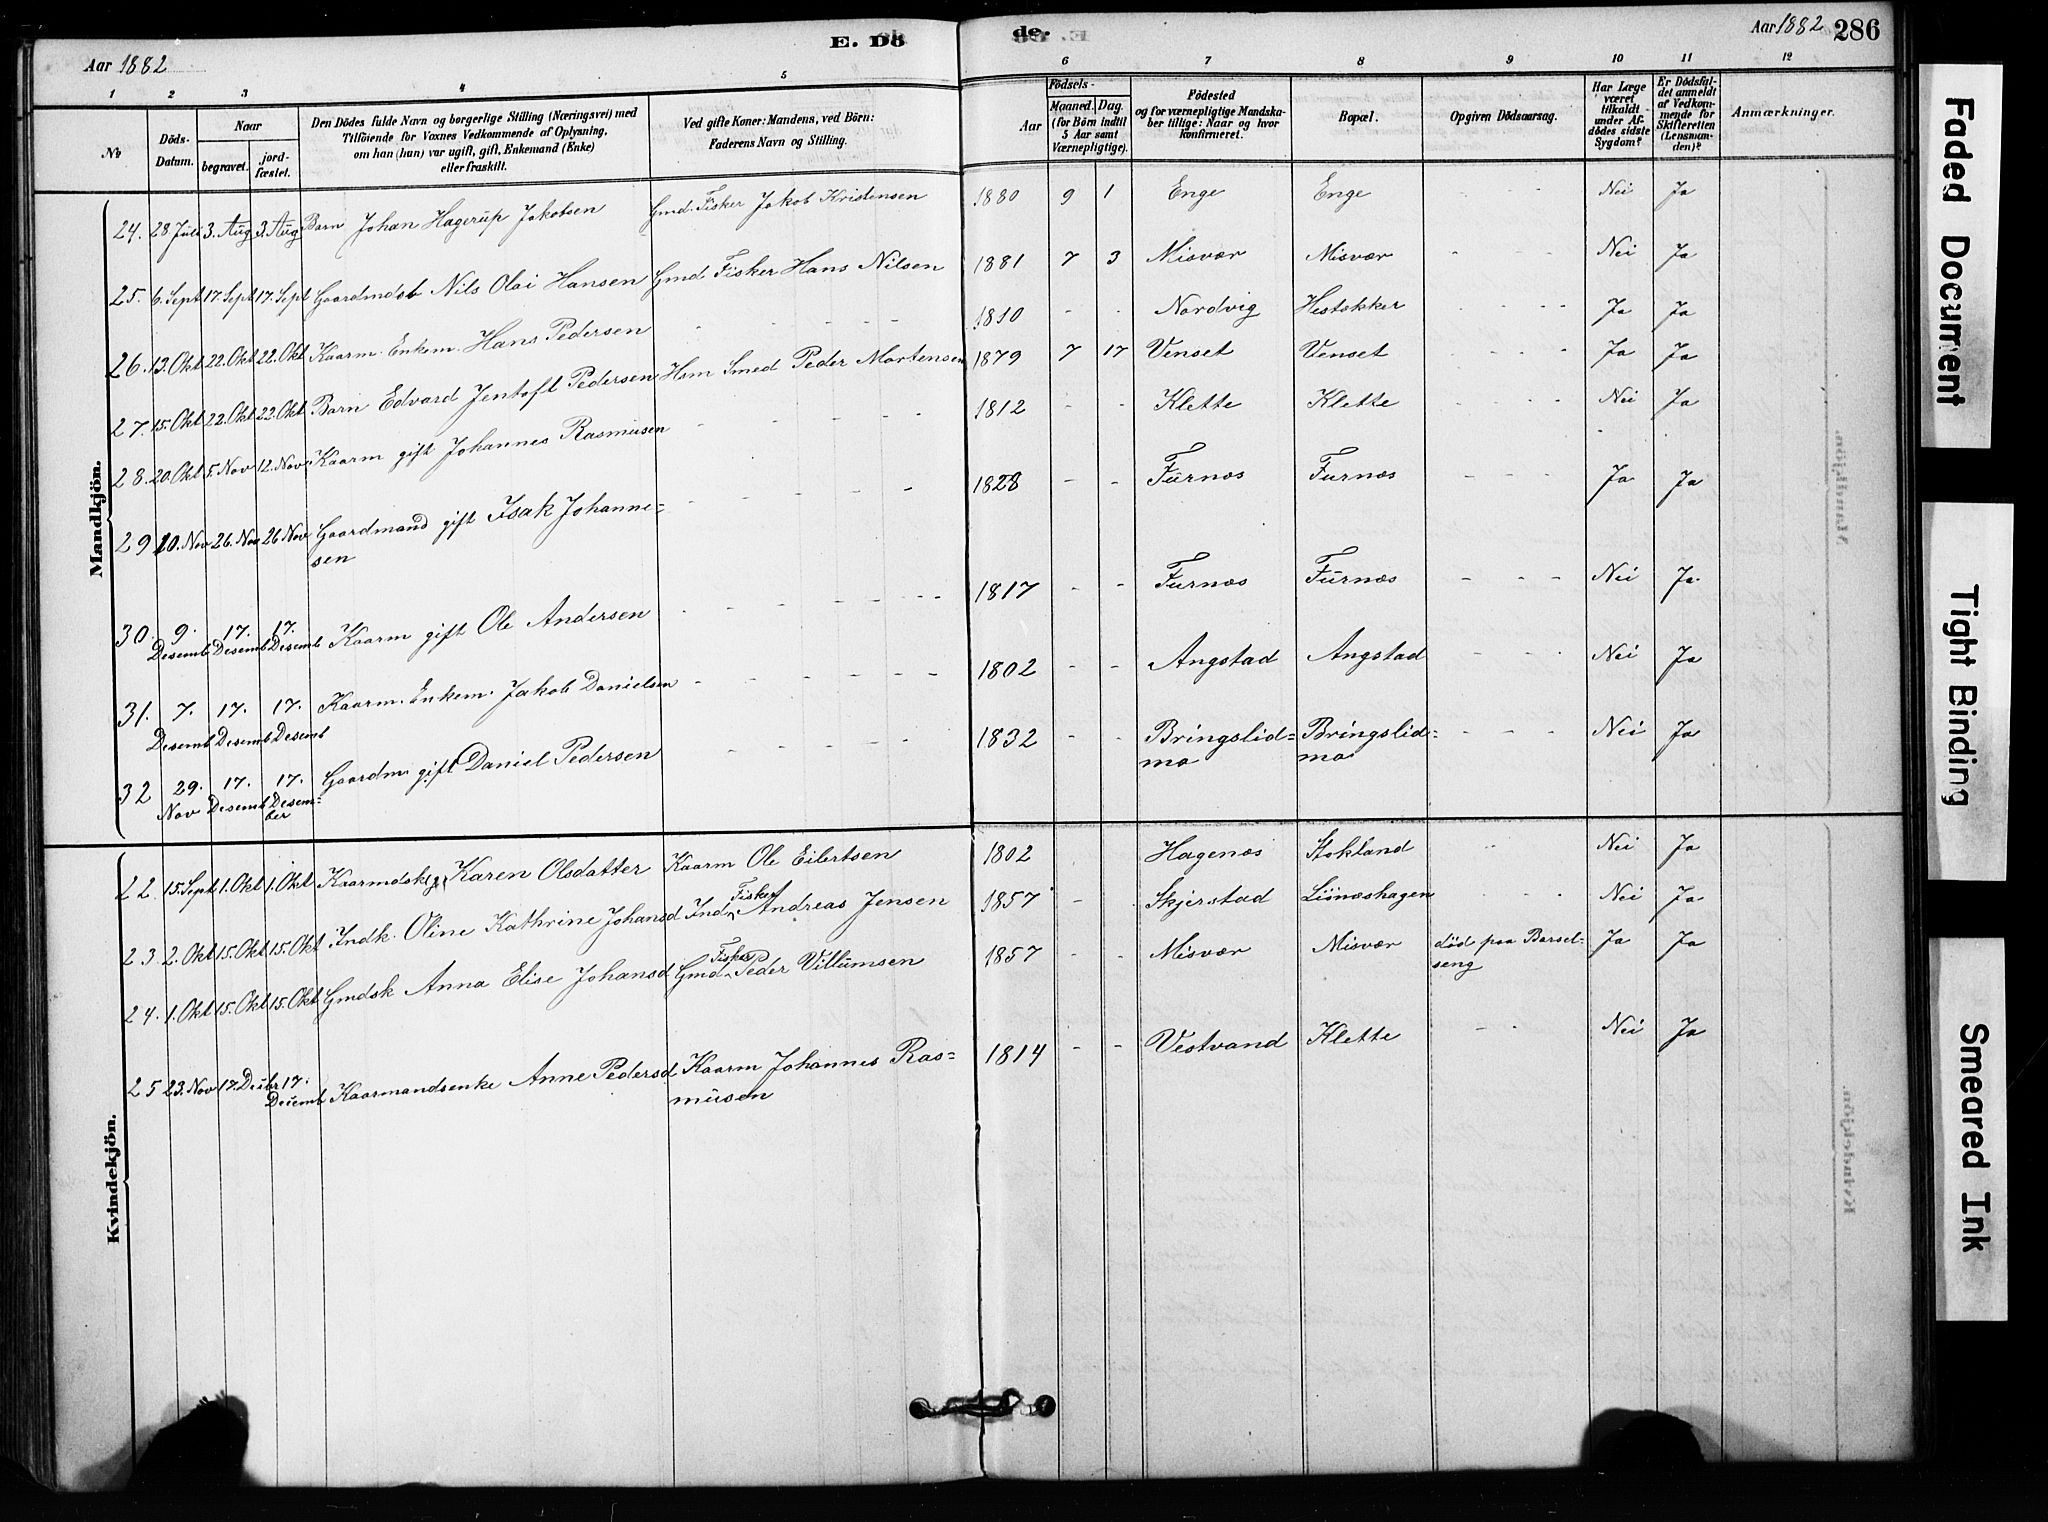 Aar 1882 E. Dö de. Aar 1882 286
1 2 3 4 5 6 7 8 9 10 11 12
No
Döds-Datum.
Naar
begravet.
jordfæstet.
Den Dödes fulde Navn og borgerlige Stilling (Næringsvei) med
Tilföiende for Voxnes Vedkommende af Oplysning,
om han (hun) var ugift, gift, Enkemand (Enke)
eller fraskilt.
Ved gifte Koner: Mandens, ved Börn:
Faderens Navn og Stilling.
Födsels-
Aar
Maaned. Dag.
(for Börn indtil
5 Aar samt
Værnepligtige).
Födested
og for værnepligtige Mandska-
ber tillige: Naar og hvor
Konfirmeret.
Bopæl.
Opgiven Dödsaarsag.
Har Læge
været
tilkaldt
under Af-
dödes sidste
Sygdom?
Er Dödsfal-
det anmeldt
af Vedkom-
mende for
Skifteretten
(Lensman-
den)?
Anmærkninger.
Mandkjön.
24. 28 Juli 3. Aug 3. Aug Barn Johan Hagerup Jakobsen Gmd. Fisker Jakob Kristensen 1880 9 1 Enge Enge Nei Ja
25. 6. Sept 17. Sept 17. Sept Gaardmdsb Nils Olai Hansen Gmd Fisker Hans Nilsen 1881 7 3 Misvær Misvær Nei Ja
26. 13. Okt 22. Okt 22. Okt Kaarm. Enkem. Hans Pedersen 1810 Nordvig Hestokker Ja Ja
27. 15. Okt 22. Okt 22. Okt Barn Edvard Jentoft Pedersen Hsm Smed Peder Mortensen 1879 7 17 Venset Venset Ja Ja
28. 20. Okt 5. Nov 12. Nov Kaarm gift Johannes Rasmusen 1812 Klette Klette Nei Ja
29 10. Nov 26. Nov 26 Nov Gaardmand gift Isak Johanne=
sen 1828 Furnes Furnæs Ja Ja
30. 9. Desemb 17. Desemb 17. Desemb Kaarm gift Ole Andersen 1817 Furnæs Furnæs Nei Ja
31. 7. Desemb 17. Desemb 17. Desemb Kaarm. Enkem. Jakob Danielsen 1802 Angstad Angstad Nei Ja
32 29. Nov 17. Desemb 17. Desem=
ber Gaardm. gift Daniel Pedersen 1832 Bringslid=
mo Bringslid=
mo Nei Ja
Kvindekjön.
22. 15. Sept 1. Okt 1. Okt Kaarmdsk(g) Karen Olsdatter Kaarm Ole Eilertsen 1802 Hagenæs Stokland Nei Ja
23. 2. Okt 15. Okt 15. Okt Indk. Oline Kathrine Johansd Ind. Fisker Andreas Jensen 1857 Skjerstad Liönæshagen Nei Ja
24. 1. Okt 15. Okt 15. Okt Gmdsk Anna Elise Johansd Gmd. Fisker Peder Villumsen 1857 Misvær Misvær död paa Barsel-
seng Ja Ja
25 23. Nov 17. Desbr 17. Desemb Kaarmandsenke Anne Pedersd Kaarm Johannes Ras=
musen 1814 Vestvand Klette Nei Ja
Faded Document
Tight Binding
Smeared Ink